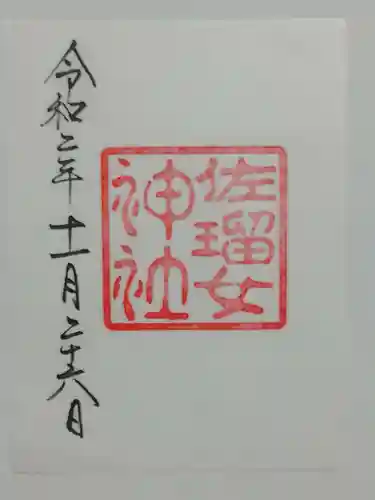 佐瑠女
神社
令和二年十一月二十六日